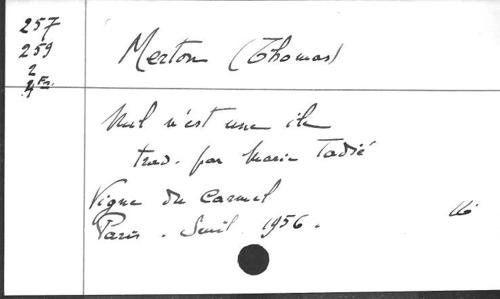 257
259
2
4 Fr.
Merton (Thomas)
Nul n'est une île
trad. par Marie Tadié
Vigne du Carmel
Paris. Seuil. 1956.